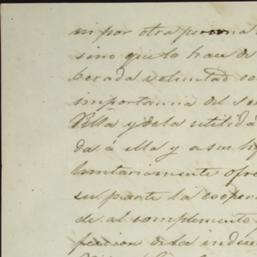 ni por otra persona
sino que lo hace de
berada voluntad co
importancia del se
Villa y de la utilid
da á ella y a sus h
luntariamente ofre
su parte la cooper
de al complemento
feccion de la indu